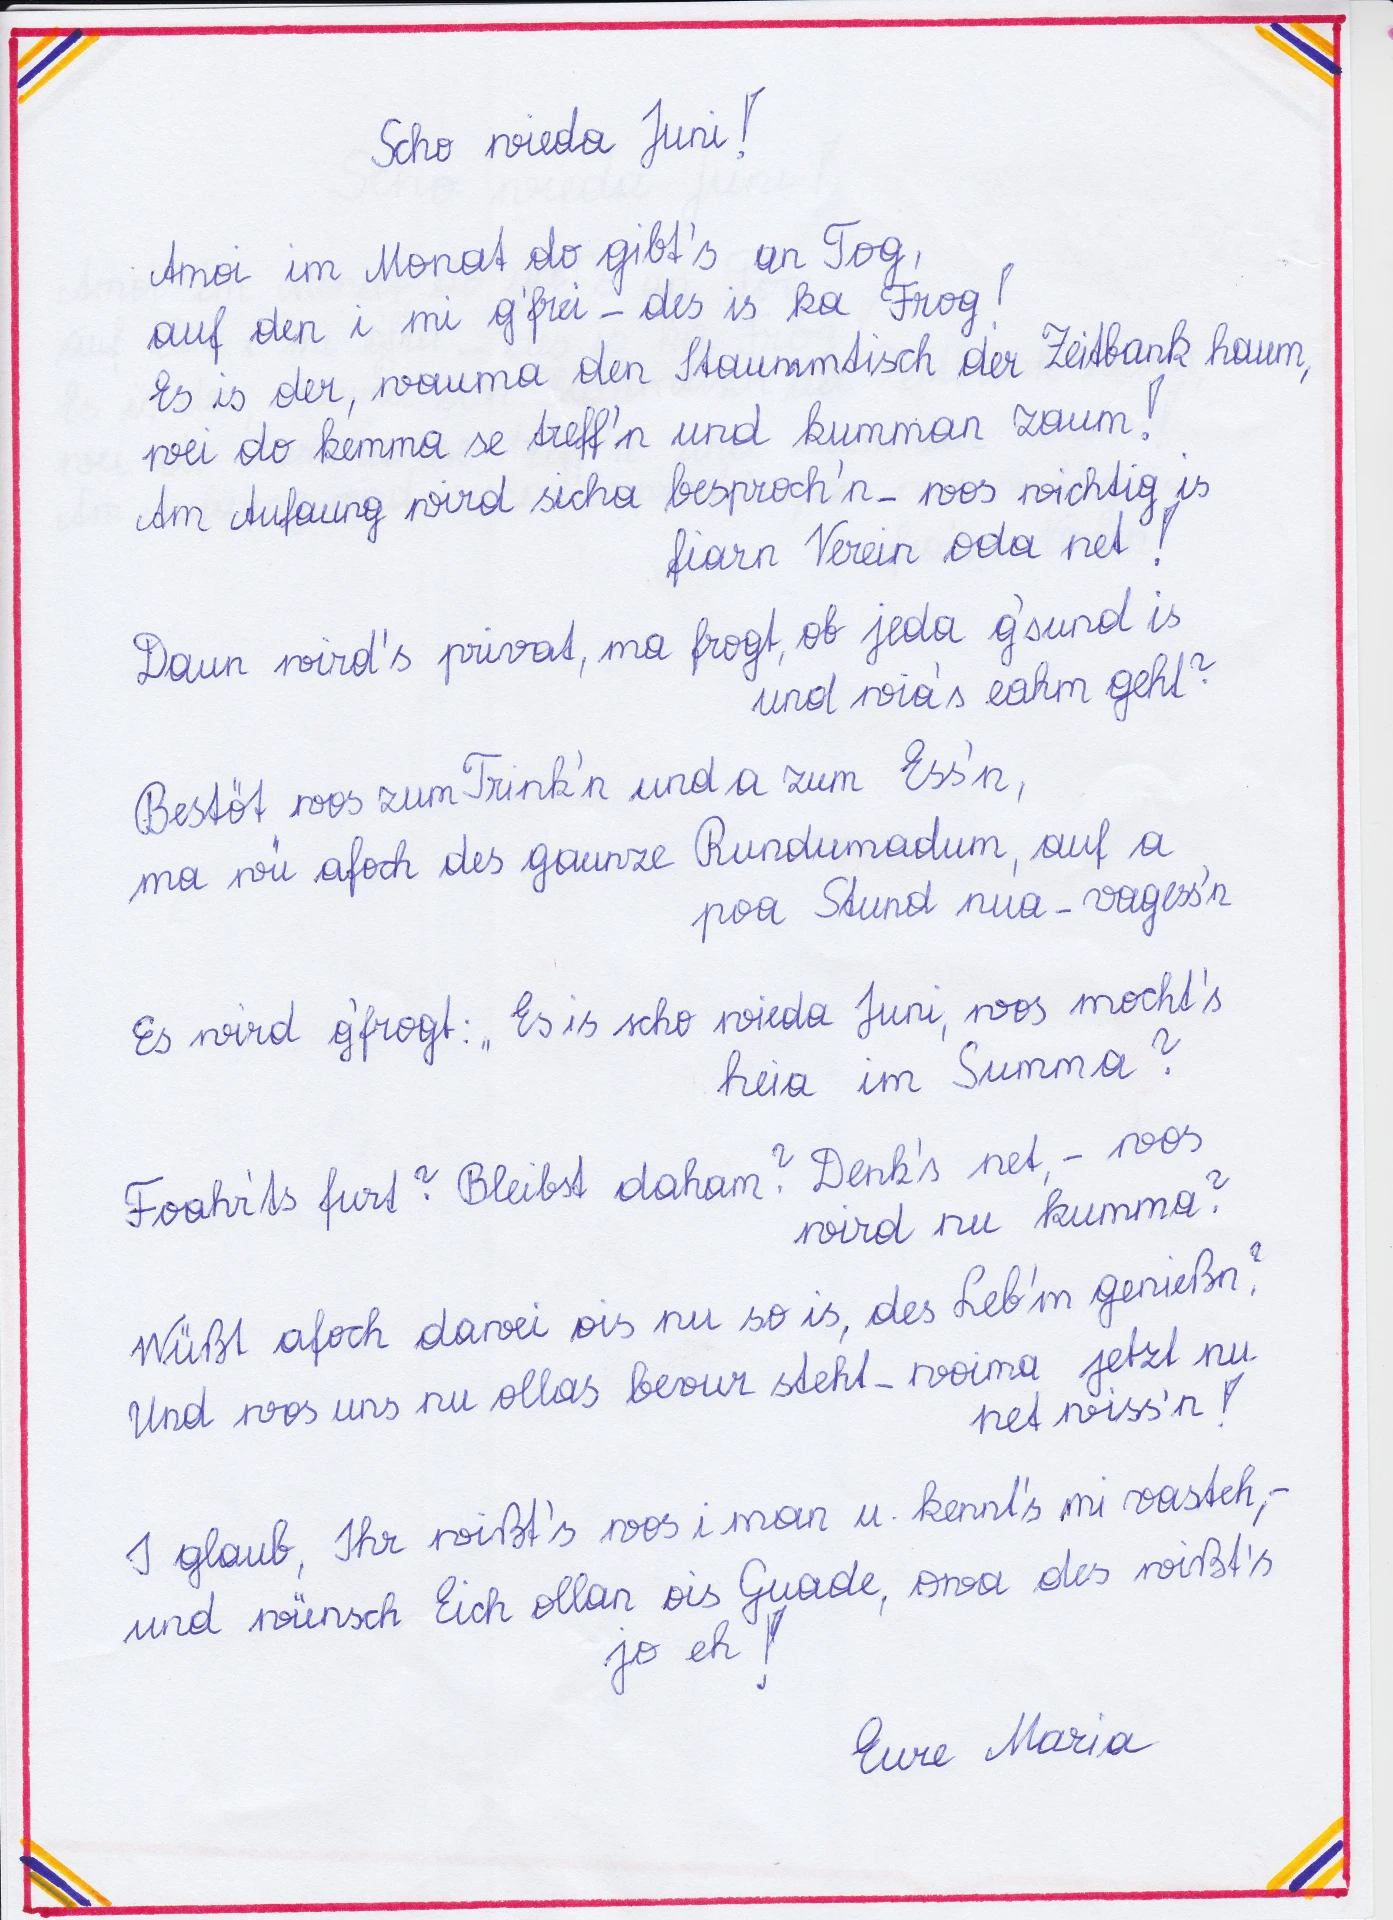 Scho wieda Juni!
Amoi im Monat do gibt's an Tog,
auf den i mi g'frei – des is ka Frog!
Es is der, wauma den Staummtisch der Zeitbank haum,
wei do kemma se treff'n und kumman zaum!
Am Aufaung wird sicha besproch'n – wos wichtig is
fiarn Verein oda net!
Daun wird's privat, ma frogt, ob jeda g'sund is
und wia's eahm geht?
Bestöt wos zum Trink'n und a zum Ess'n,
ma wü afoch des gaunze Rundumadum, auf a
poa Stund nua – vagess'n
Es wird g'frogt: „Es is scho wieda Juni, wos mocht's
heia im Summa?
Foahr'ts furt? Bleibst daham? Denk's net, – wos
wird nu kumma?
Wüßt afoch dawei ois nu so is, des Leb'm genießn?
Und wos uns nu ollas bevur steht – woima jetzt nu
net wiss'n!
I glaub, Ihr wißt's wos i man u. kennt's mi vasteh, –
und wünsch Eich ollan ois Guade, owa des wißt's
jo eh!
Eure Maria